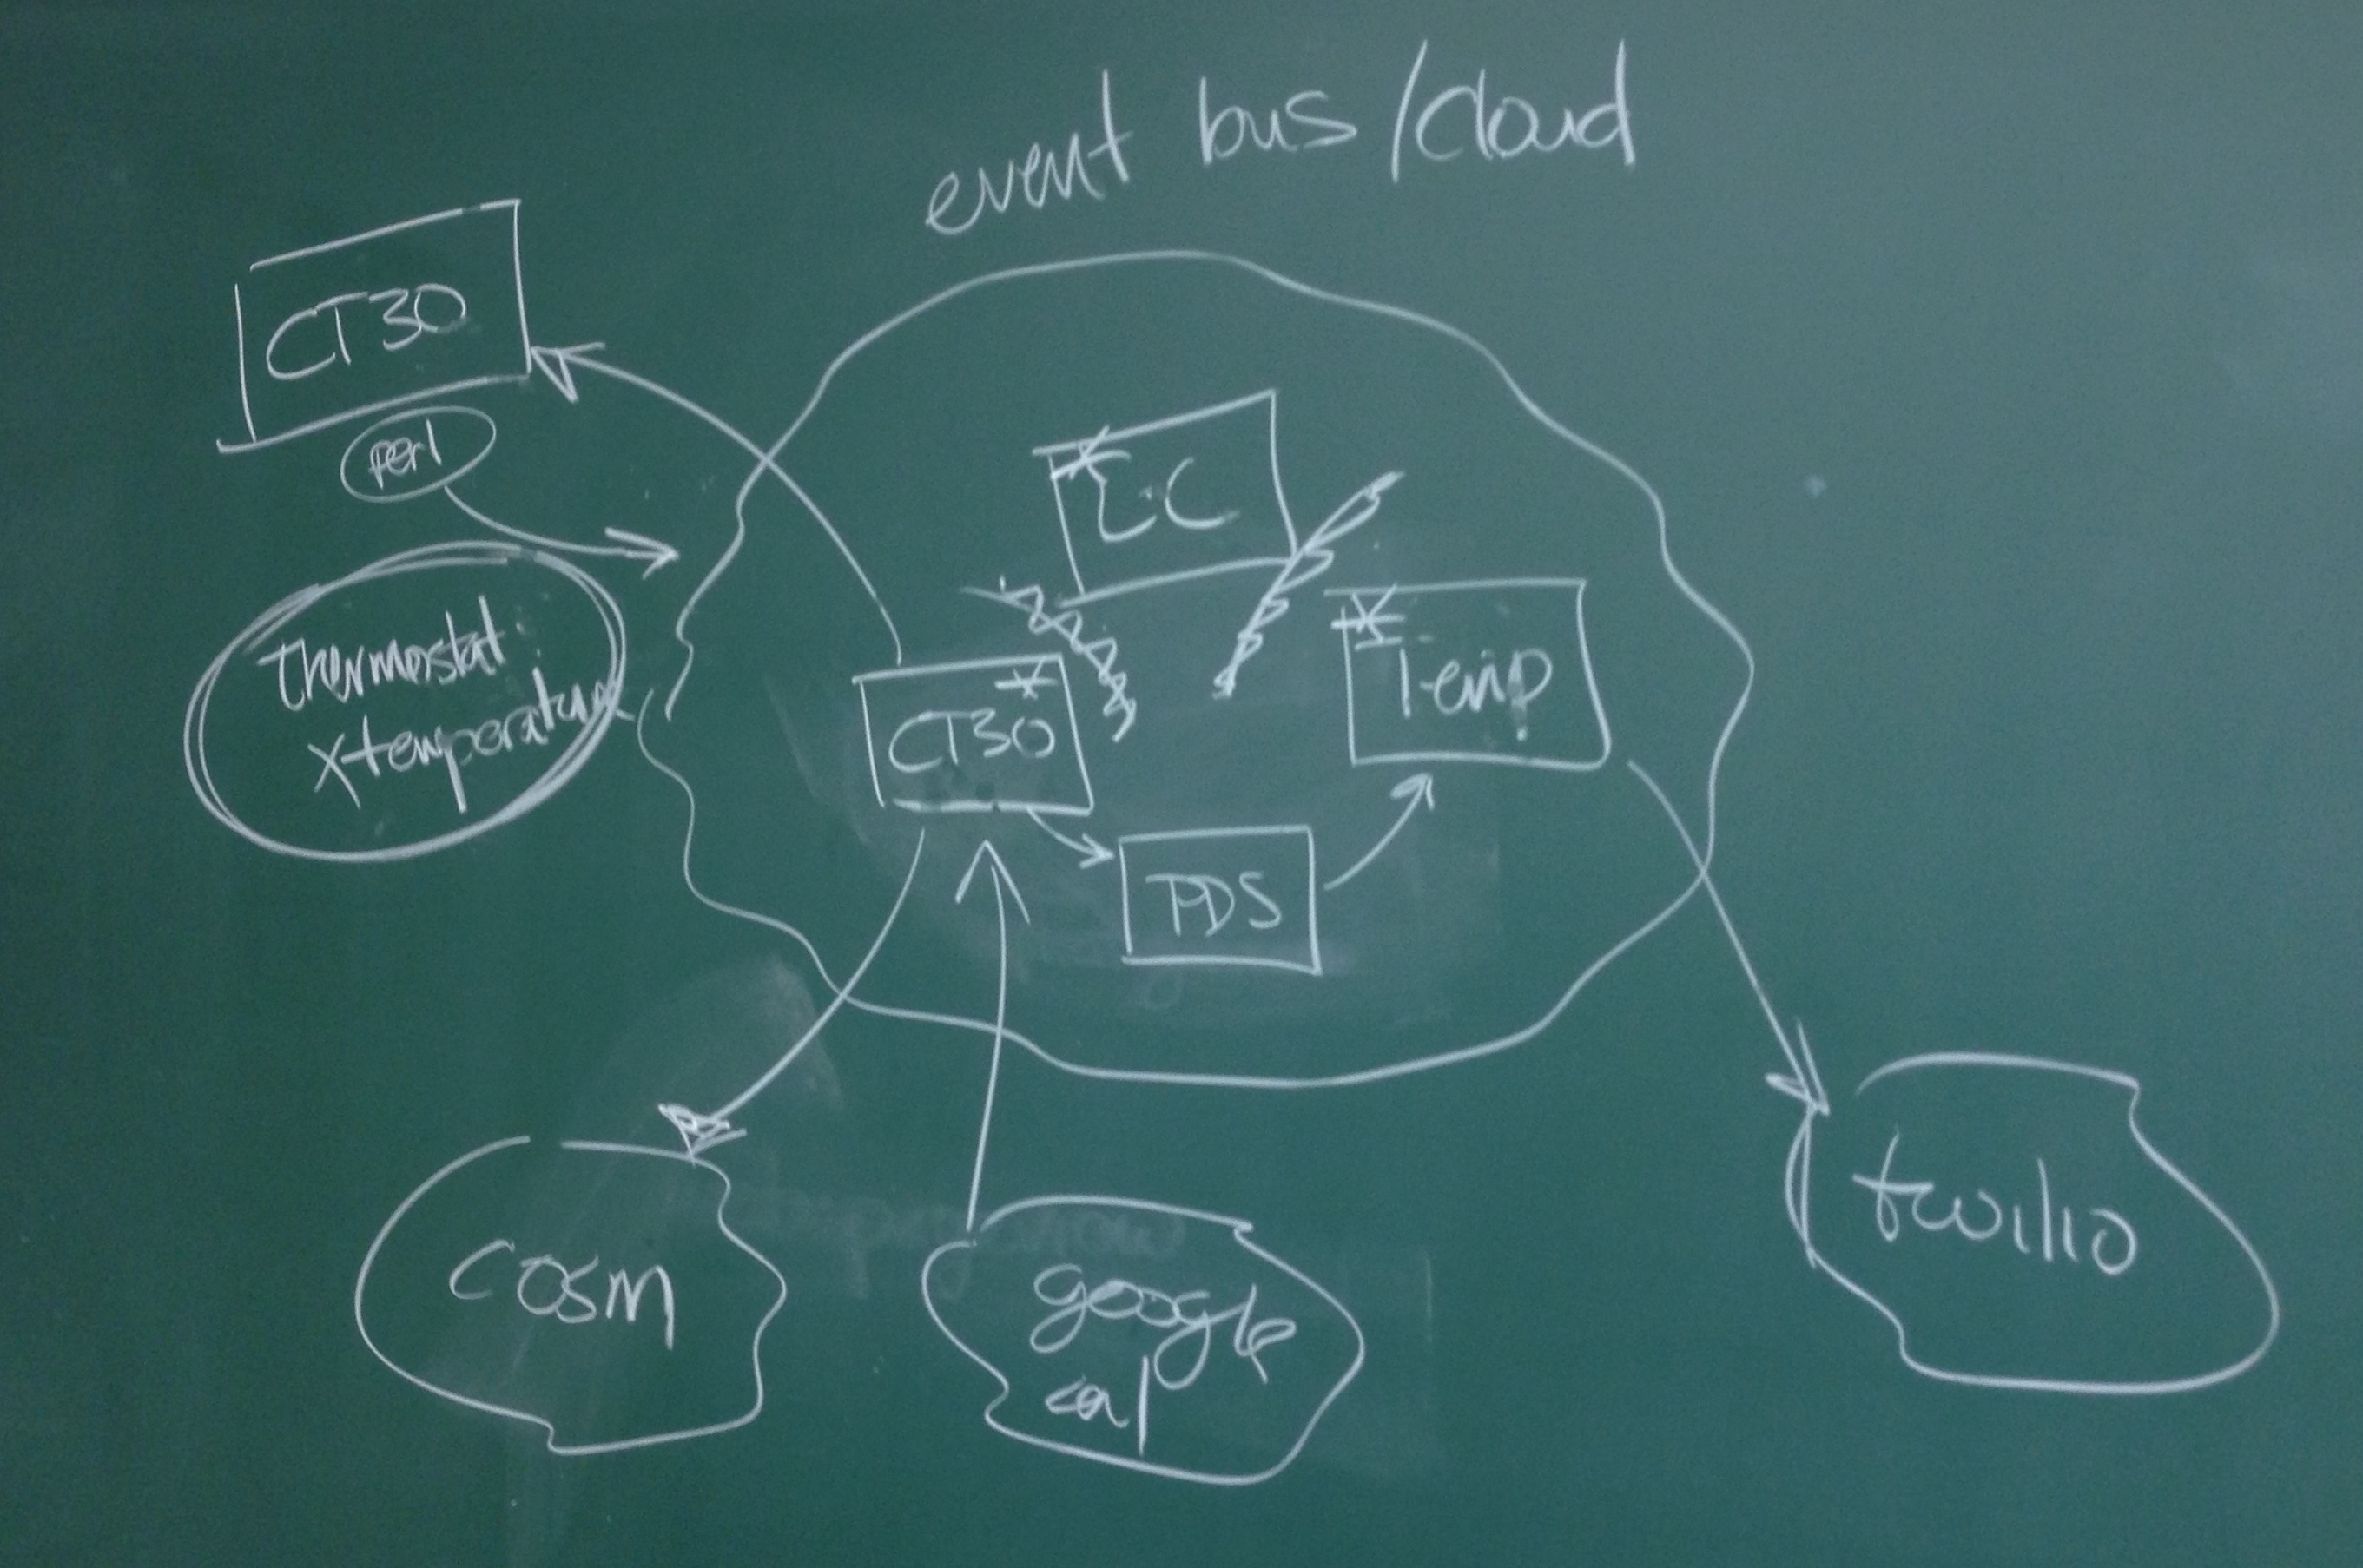 event bus/cloud
CT30
perl
thermostat:
xtemperature
* EC
CT30 *
* Temp
PDS
cosm
google
cal
twilio